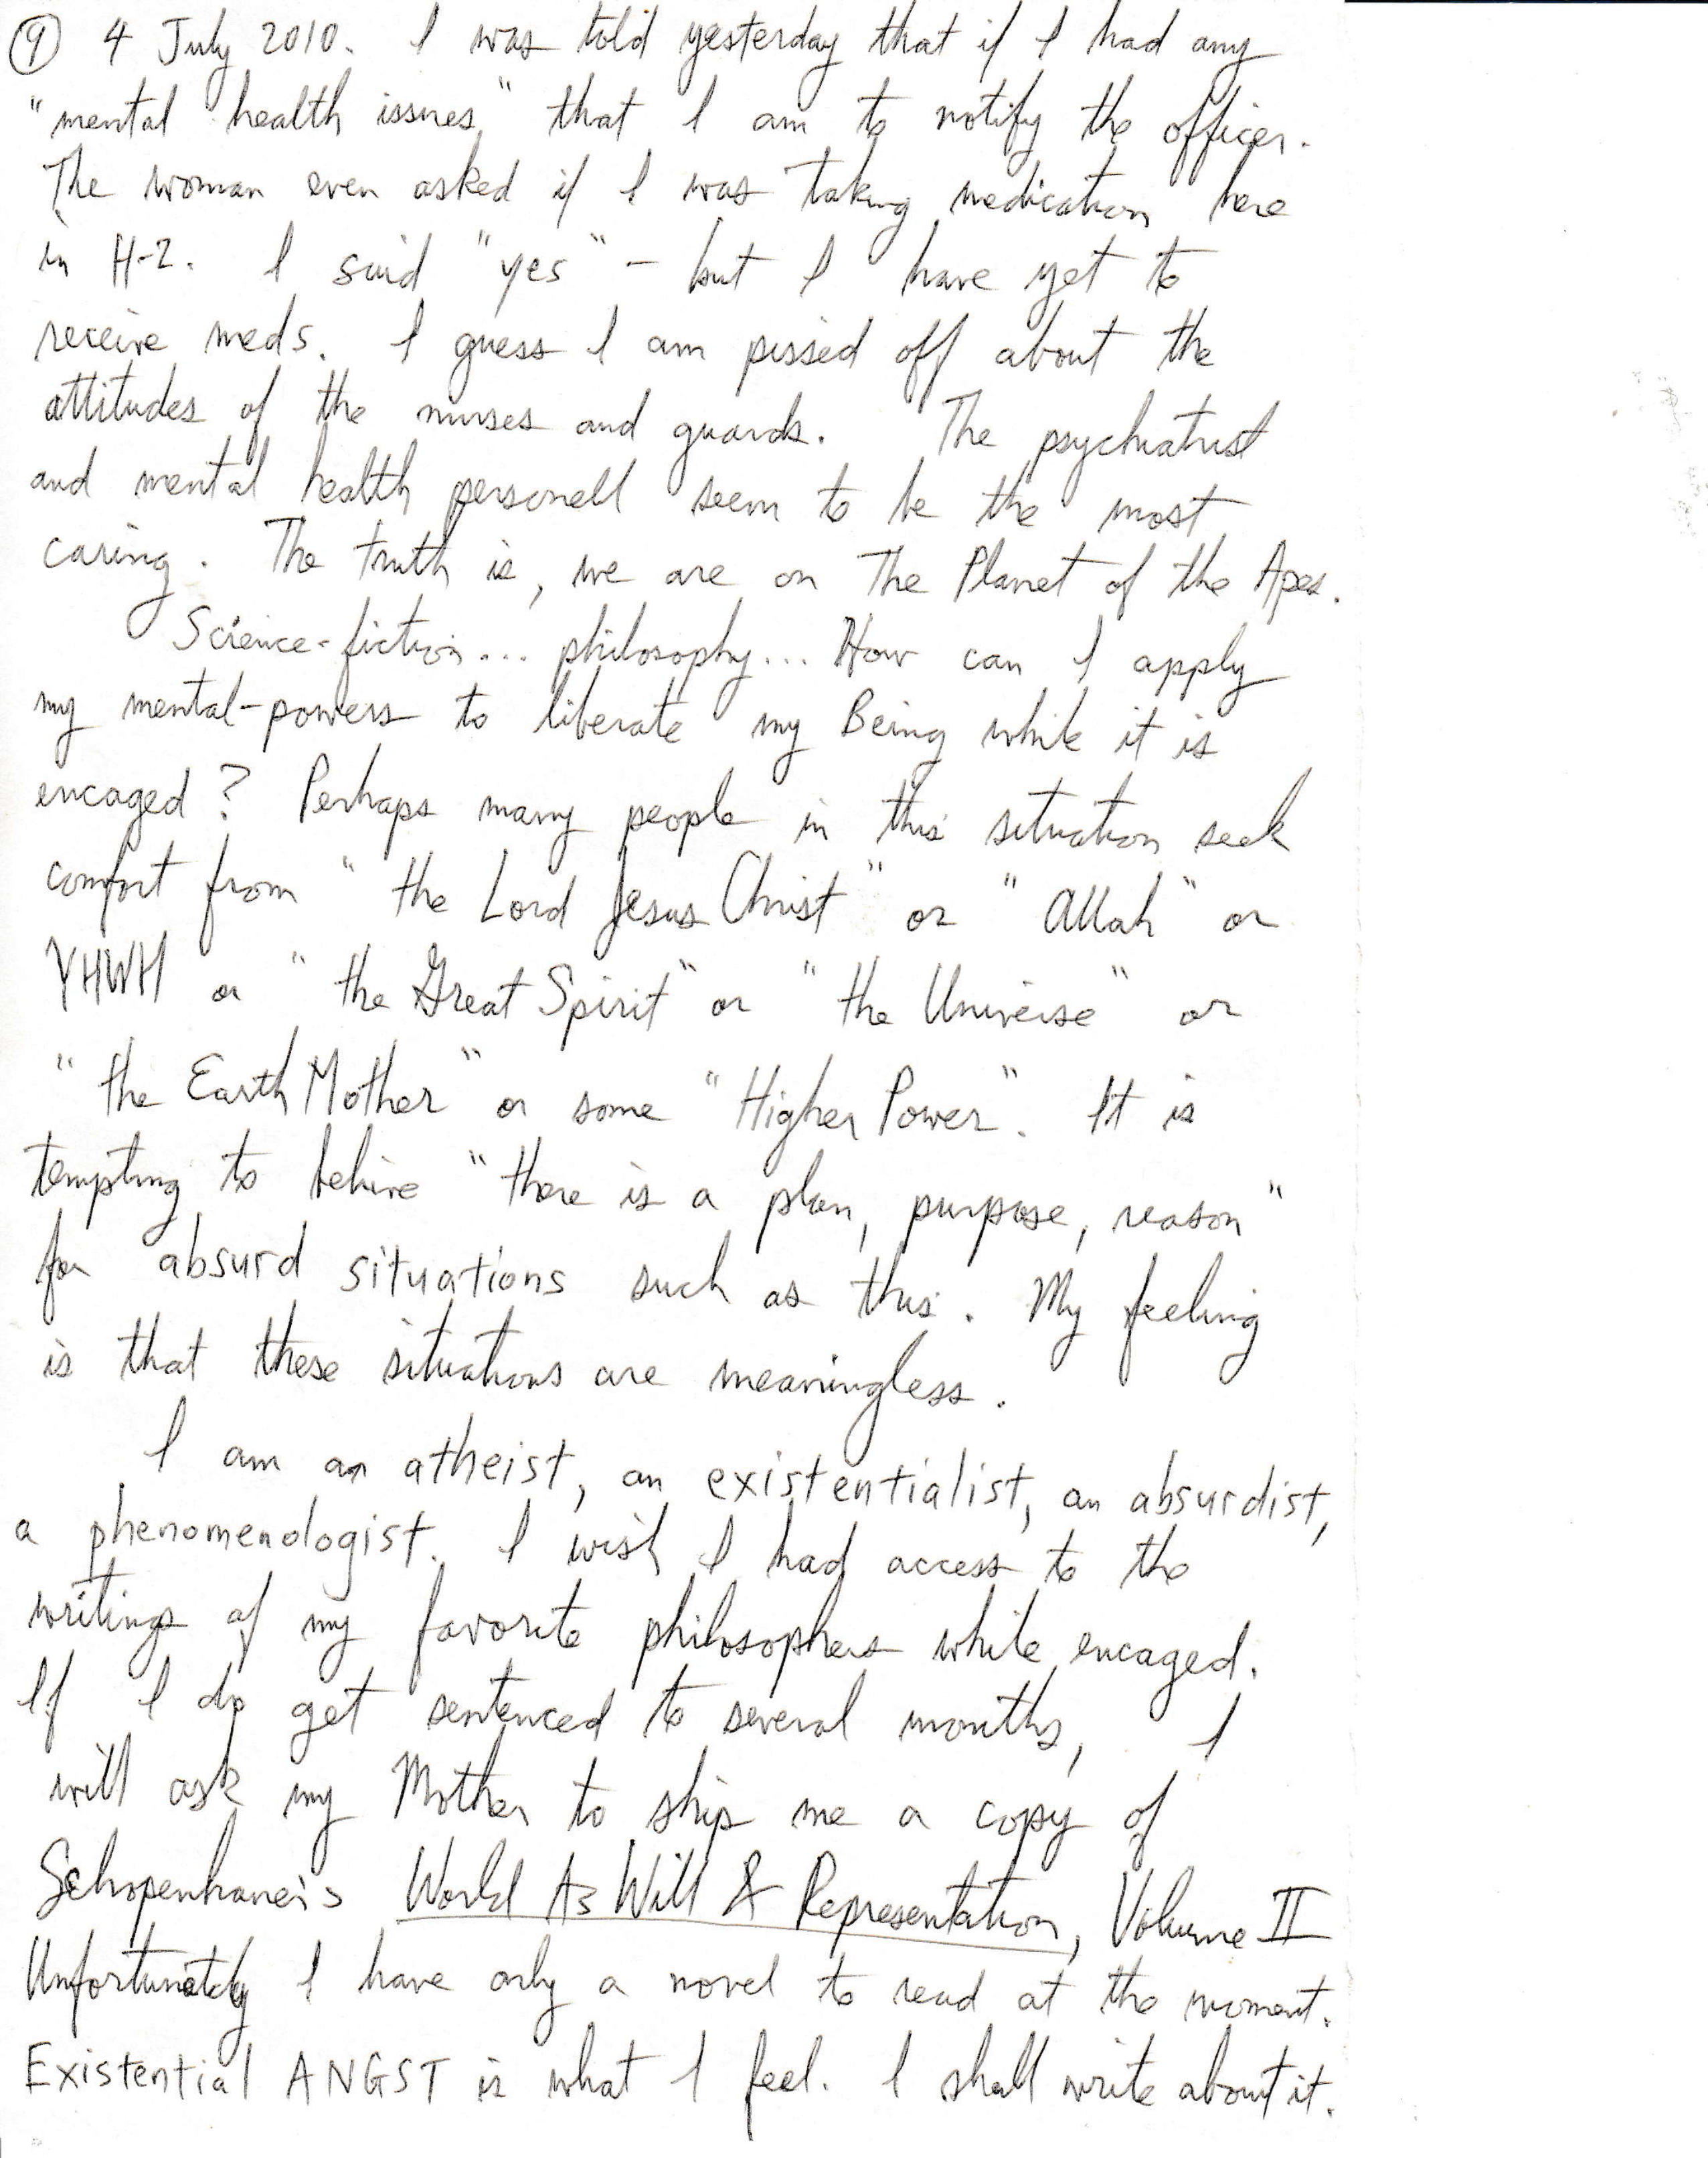 ⑨ 4 July 2010. I was told yesterday that if I had any
"mental health issues" that I am to notify the officer.
The woman even asked if I was taking medication here
in H-2. I said "yes" - but I have yet to
receive meds. I guess I am pissed off about the
attitudes of the nurses and guards. The psychiatrist
and mental health personell seem to be the most
caring. The truth is, we are on The Planet of the Apes.
Science-fiction... philosophy... How can I apply
my mental-powers to liberate my Being while it is
encaged? Perhaps many people in this situation seek
comfort from "the Lord Jesus Christ" or "Allah" or
YHWH or "the Great Spirit" or "the Universe" or
"the Earth Mother" or some "Higher Power". It is
tempting to belive "there is a plan, purpose, reason"
for absurd situations such as this. My feeling
is that these situations are meaningless.
I am an atheist, an existentialist, an absurdist,
a phenomenologist. I wish I had access to the
writings of my favorite philosophers while encaged.
If I do get sentenced to several months, I
will ask my Mother to ship me a copy of
Schopenhauer's World As Will & Representation, Volume II
Unfortunately I have only a novel to read at the moment.
Existential ANGST is what I feel. I shall write about it.